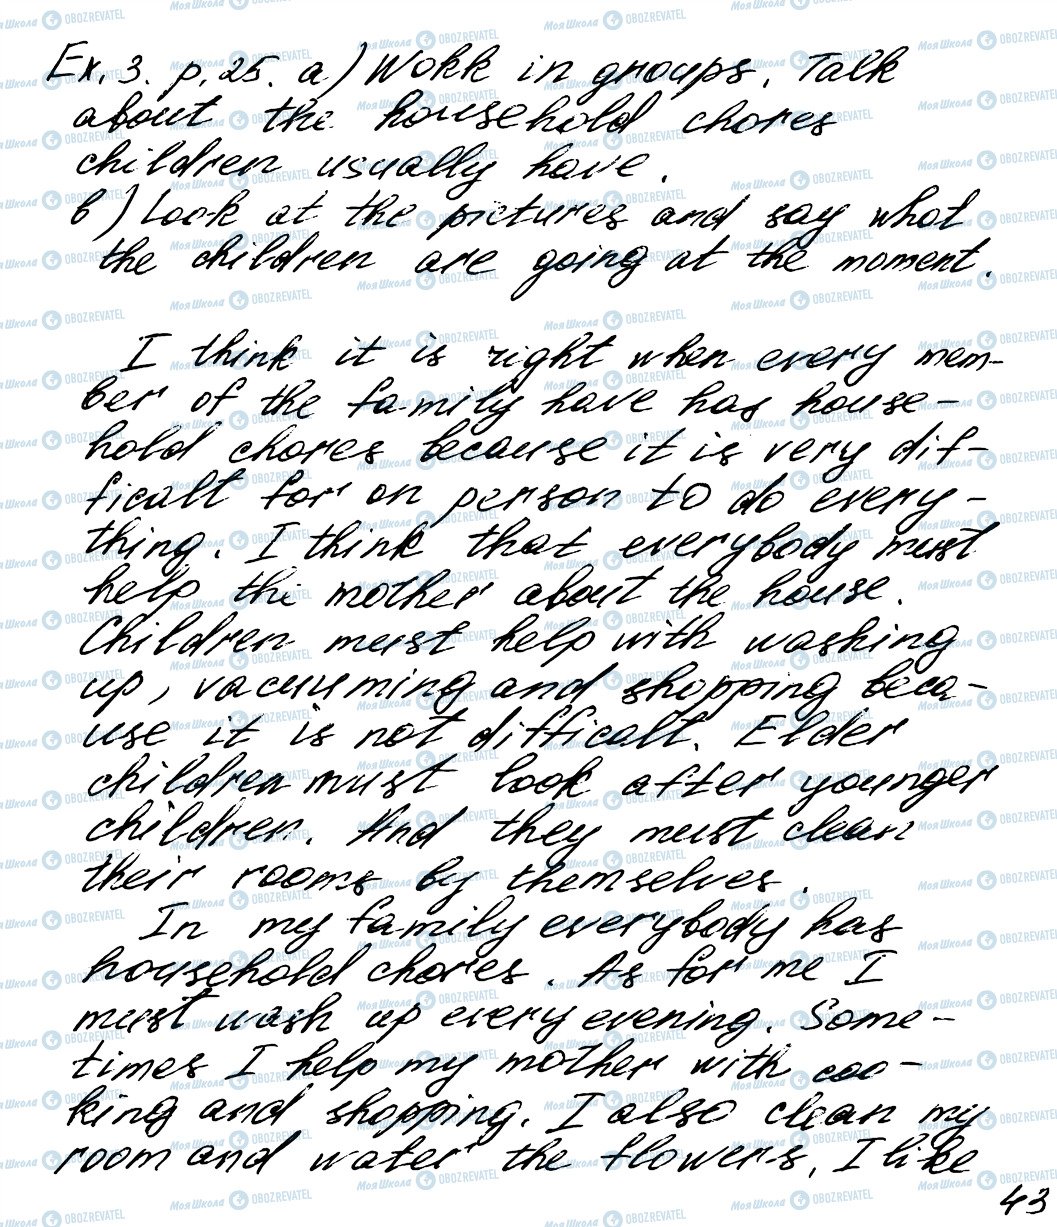 Ex. 3. p. 25. a) Work in groups. Talk
about the household chores
children usually have.
b) Look at the pictures and say what
the children are going at the moment.
I think it is right when every mem-
ber of the family have has house-
hold chores because it is very dif-
ficalt for on person to do every-
thing. I think that everybody must
help the mother about the house.
Children must help with washing
up, vacuuming and shopping beca-
use it is not difficalt. Elder
children must look after younger
children. And they must clean
their rooms by themselves.
In my family everybody has
household chores. As for me I
must wash up every evening. Some-
times I help my mother with coo-
king and shopping. I also clean my
room and water the flowers. I like
43
Моя Школа OBOZREVATEL